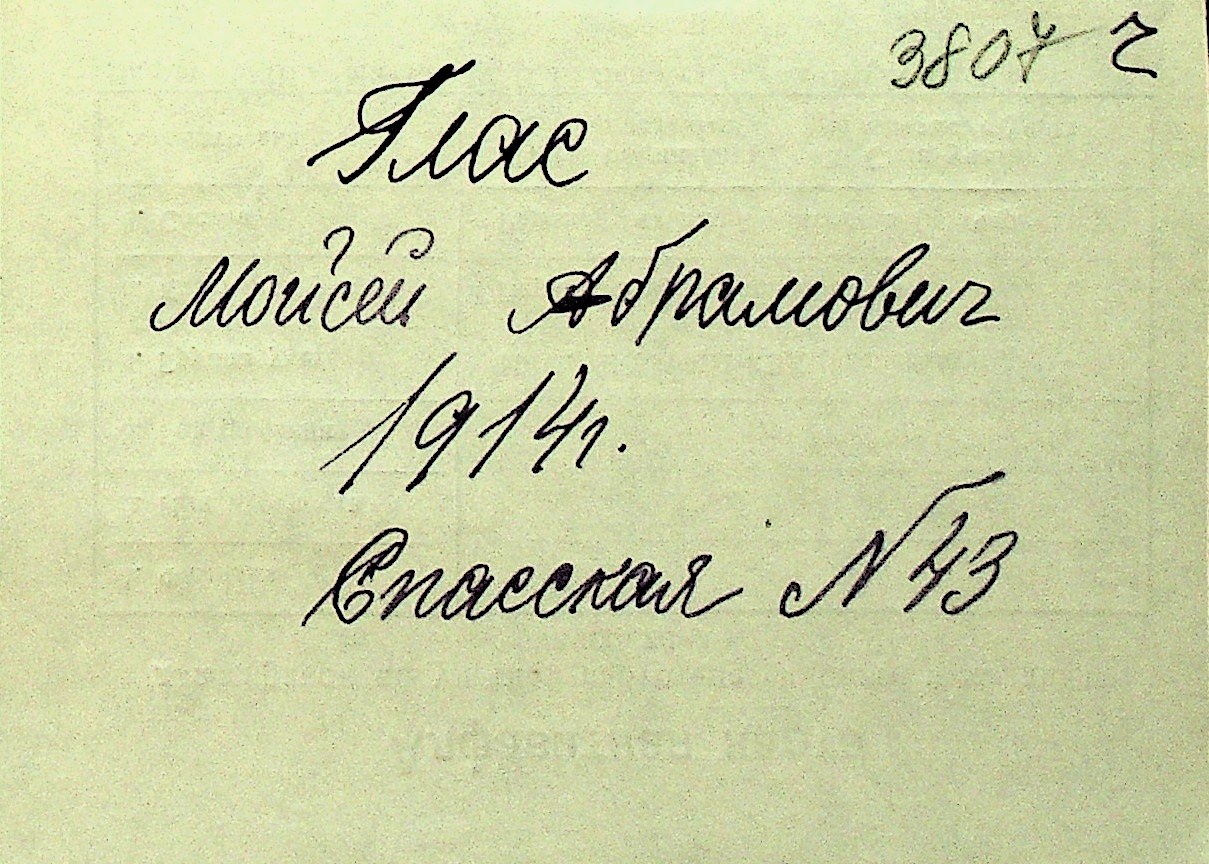 3807 г
Глас
Мойсей Абрамович
1914г.
Спасская N 43